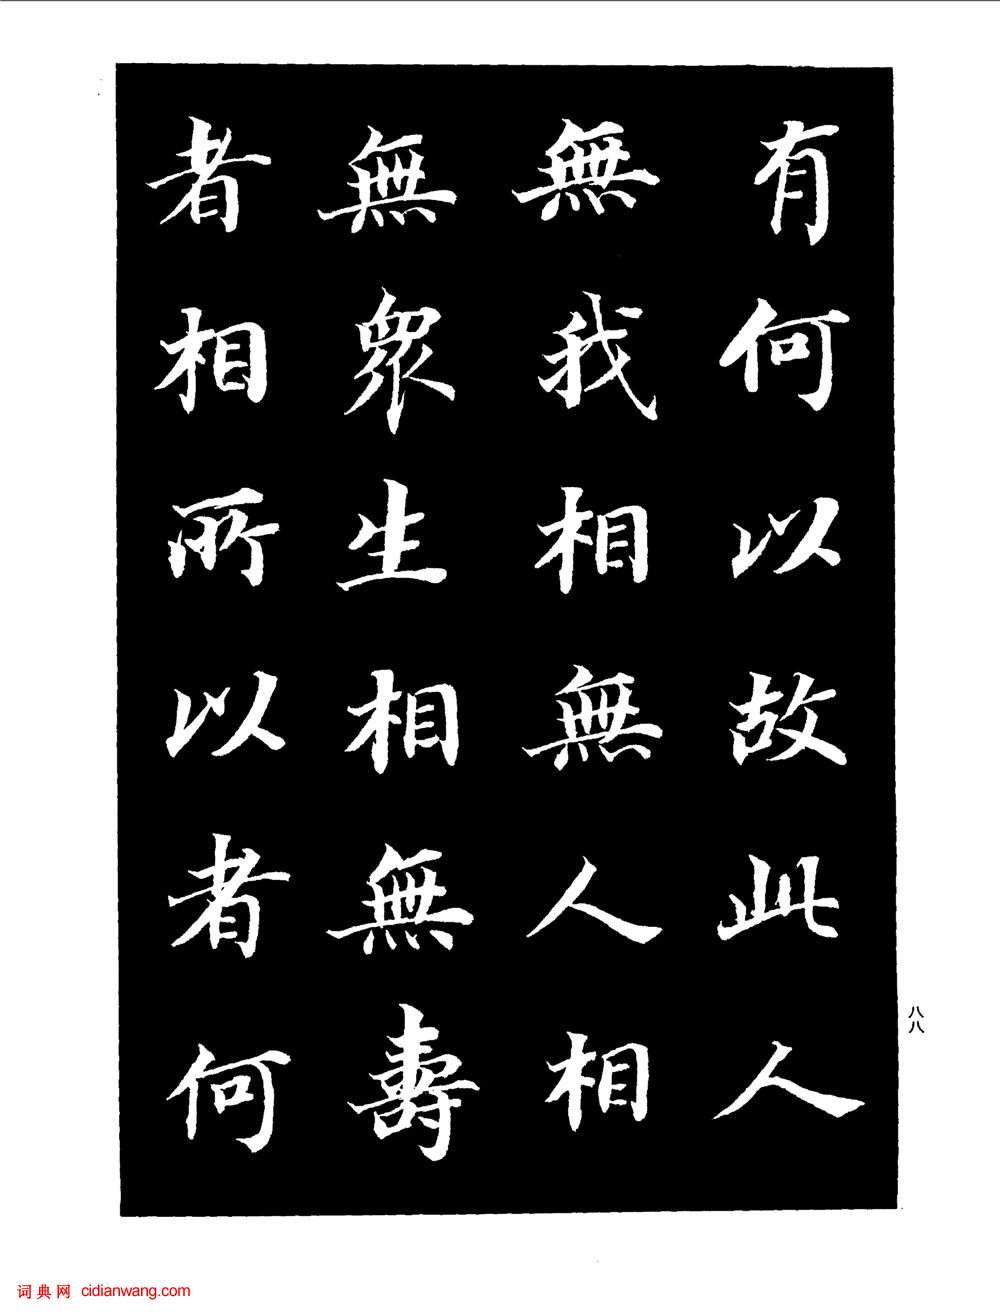 有何以故此人
無我相無人相
無眾生相無壽
者相所以者何
八八
词典网 cidianwang.com